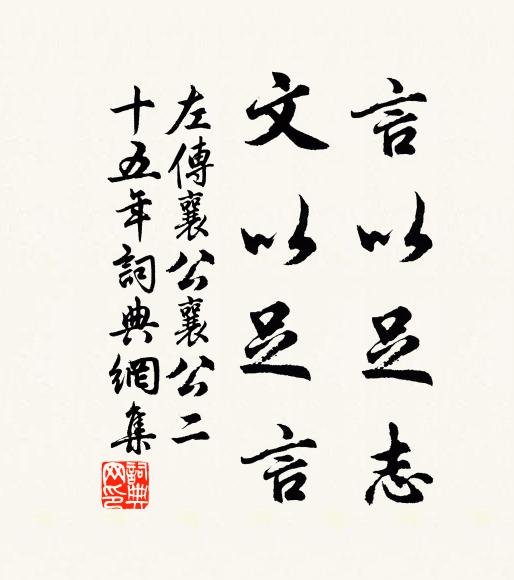 言以足志
文以足言
左傳襄公襄公二
十五年詞典網集
詞典网印